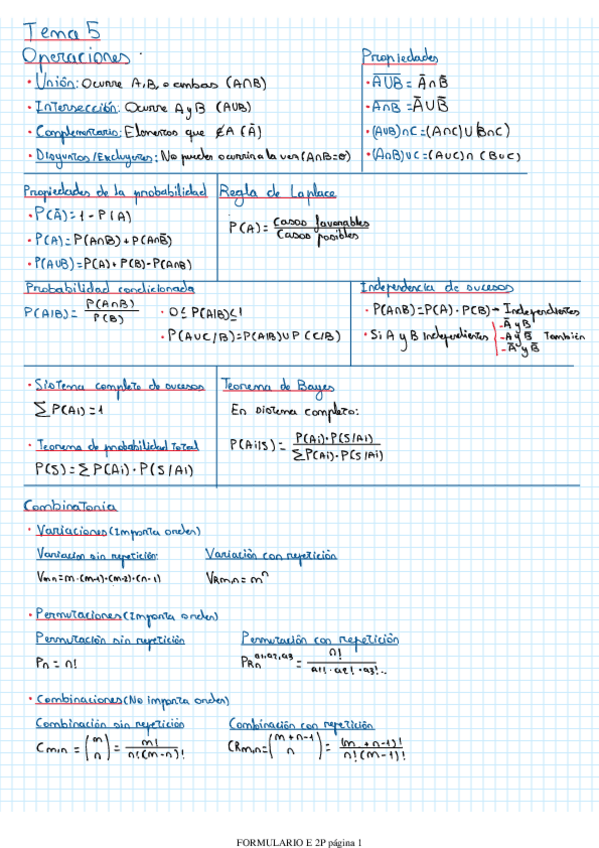 Tema 5
Operaciones
· Unión: Ocurre A, B, o ambas (A∩B)
· Intersección: Ocurre A y B (A∪B)
· Complementario: Elementos que ∉A (Ā)
· Disjuntos/Excluyentes: No pueden ocurrir a la vez (A∩B=∅)
Propiedades
· A̅∪̅B̅ = Ā∩B̅
· A̅∩̅B̅ = Ā∪B̅
· (A∪B)∩C=(A∩C)∪(B∩C)
· (A∩B)∪C=(A∪C)∩(B∪C)
Propiedades de la probabilidad
· P(Ā)=1-P(A)
· P(A)=P(A∩B)+P(A∩B̅)
· P(A∪B)=P(A)+P(B)-P(A∩B)
Regla de Laplace
P(A)= Casos favorables / Casos posibles
Probabilidad condicionada
P(A|B)= P(A∩B) / P(B)
· 0≤P(A|B)≤1
· P(A∪C/B)=P(A|B)∪P(C/B)
Independencia de sucesos
· P(A∩B)=P(A)·P(B)→ Independientes
· Si A y B Independientes
- Ā y B
- A y B̅ También
- Ā y B̅
· Sistema completo de sucesos
∑P(Ai)=1
· Teorema de probabilidad Total
P(S)=∑P(Ai)·P(S/Ai)
Teorema de Bayes
En sistema completo:
P(Ai|S)= P(Ai)·P(S/Ai) / ∑P(Ai)·P(S/Ai)
Combinatoria
· Variaciones (Importa orden)
Variación sin repetición:
Vm,n=m·(m-1)·(m-2)·(n-1)
Variación con repetición
VRm,n=mⁿ
· Permutaciones (Importa orden)
Permutación sin repetición
Pn=n!
Permutación con repetición
PRn^a1,a2,a3 = n! / a1!·a2!·a3!..
· Combinaciones (No importa orden)
Combinación sin repetición
Cm,n = (m n) = m! / n!(m-n)!
Combinación con repetición
CRm,n=(m+n-1 n) = (m+n-1)! / n!(m-1)!
FORMULARIO E 2P página 1